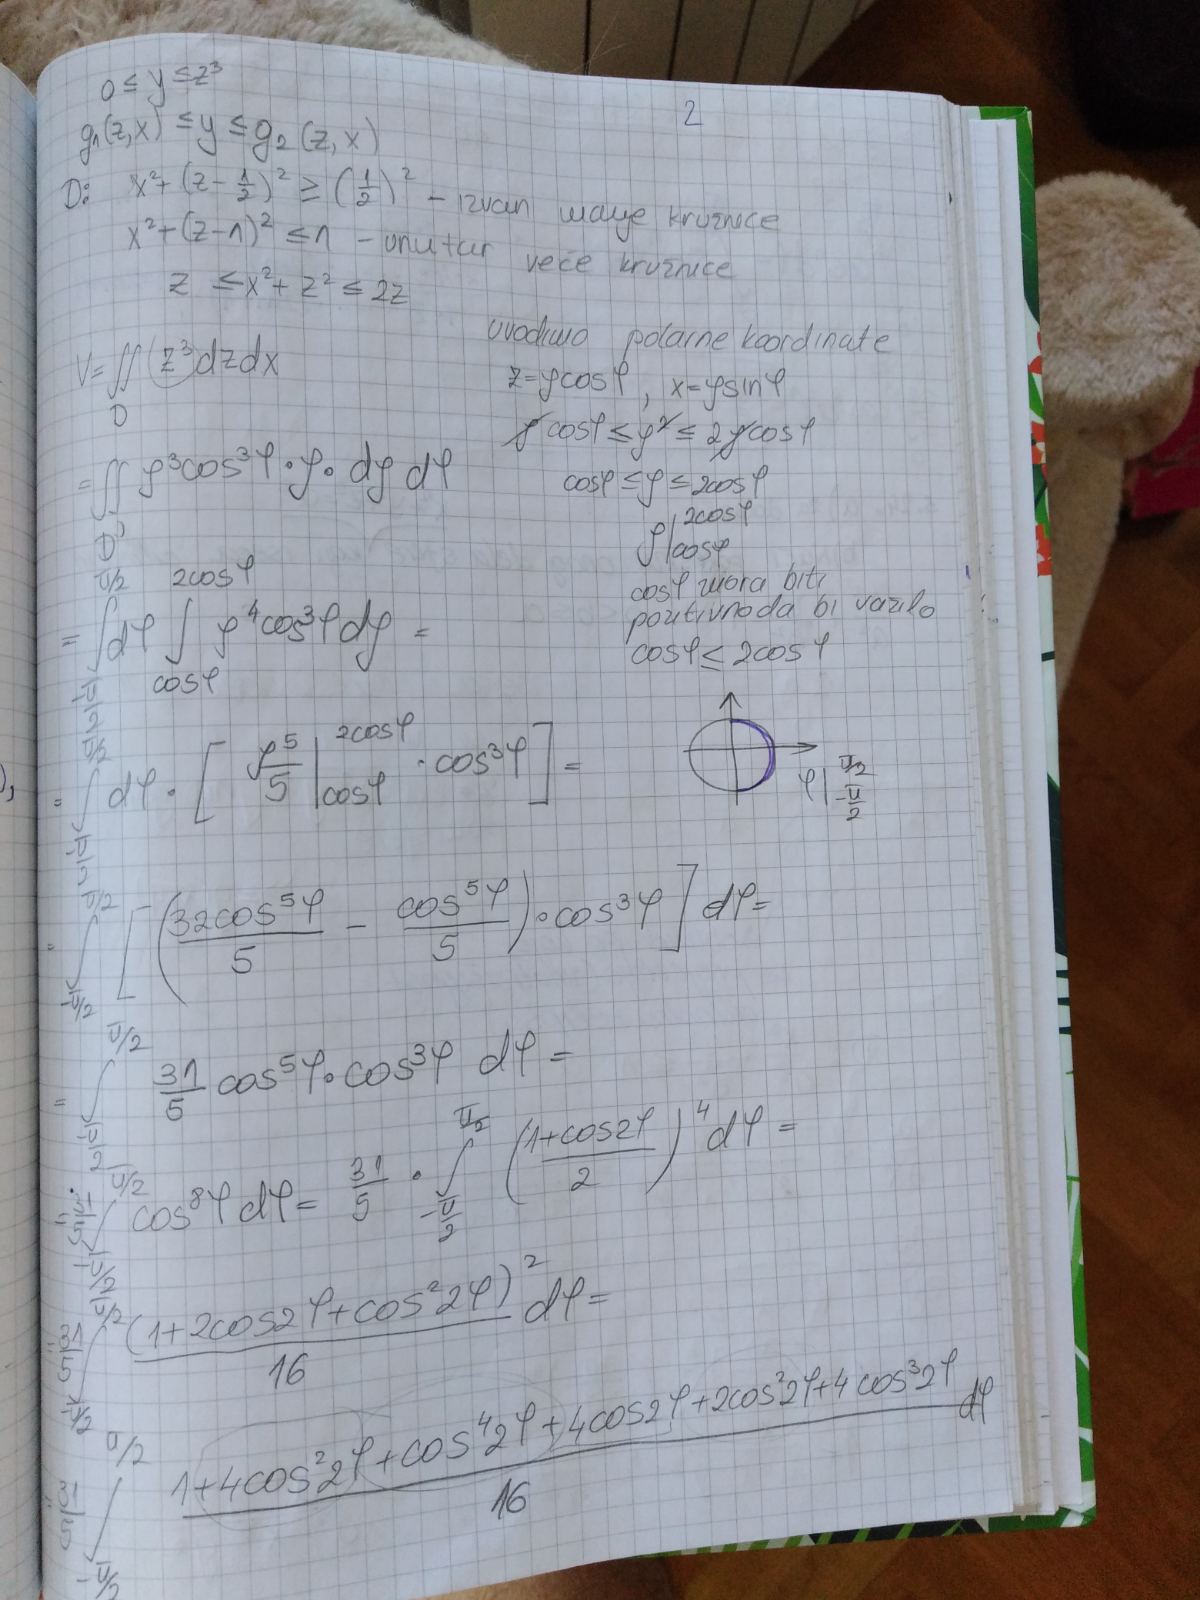 2
0 ≤ y ≤ z³
g₁(z,x) ≤ y ≤ g₂(z,x)
D: x² + (z - 1/2)² ≥ (1/2)² - izvan manje kružnice
x² + (z-1)² ≤ 1 - unutar veće kružnice
z ≤ x² + z² ≤ 2z
V = ∬_D (z³) dz dx
uvodimo polarne koordinate
z = ρcosφ, x = ρsinφ
ρcosφ ≤ ρ² ≤ 2ρcosφ
= ∬_D' ρ³cos³φ · ρ · dρ dφ
cosφ ≤ ρ ≤ 2cosφ
ρ |_cosφ^2cosφ
cosφ mora biti
pozitivno da bi važilo
cosφ ≤ 2cosφ
= ∫_{-π/2}^{π/2} dφ ∫_{cosφ}^{2cosφ} ρ⁴cos³φ dρ =
φ |_{-π/2}^{π/2}
= ∫_{-π/2}^{π/2} dφ · [ ρ⁵/5 |_{cosφ}^{2cosφ} · cos³φ ] =
= ∫_{-π/2}^{π/2} [ ( 32cos⁵φ/5 - cos⁵φ/5 ) · cos³φ ] dφ =
= ∫_{-π/2}^{π/2} 31/5 cos⁵φ · cos³φ dφ =
= 31/5 · ∫_{-π/2}^{π/2} cos⁸φ dφ = 31/5 · ∫_{-π/2}^{π/2} ( (1+cos2φ)/2 )⁴ dφ =
= 31/5 ∫_{-π/2}^{π/2} (1+2cos2φ+cos²2φ)²/16 dφ =
= 31/5 ∫_{-π/2}^{π/2} (1+4cos²2φ+cos⁴2φ+4cos2φ+2cos²2φ+4cos³2φ)/16 dφ